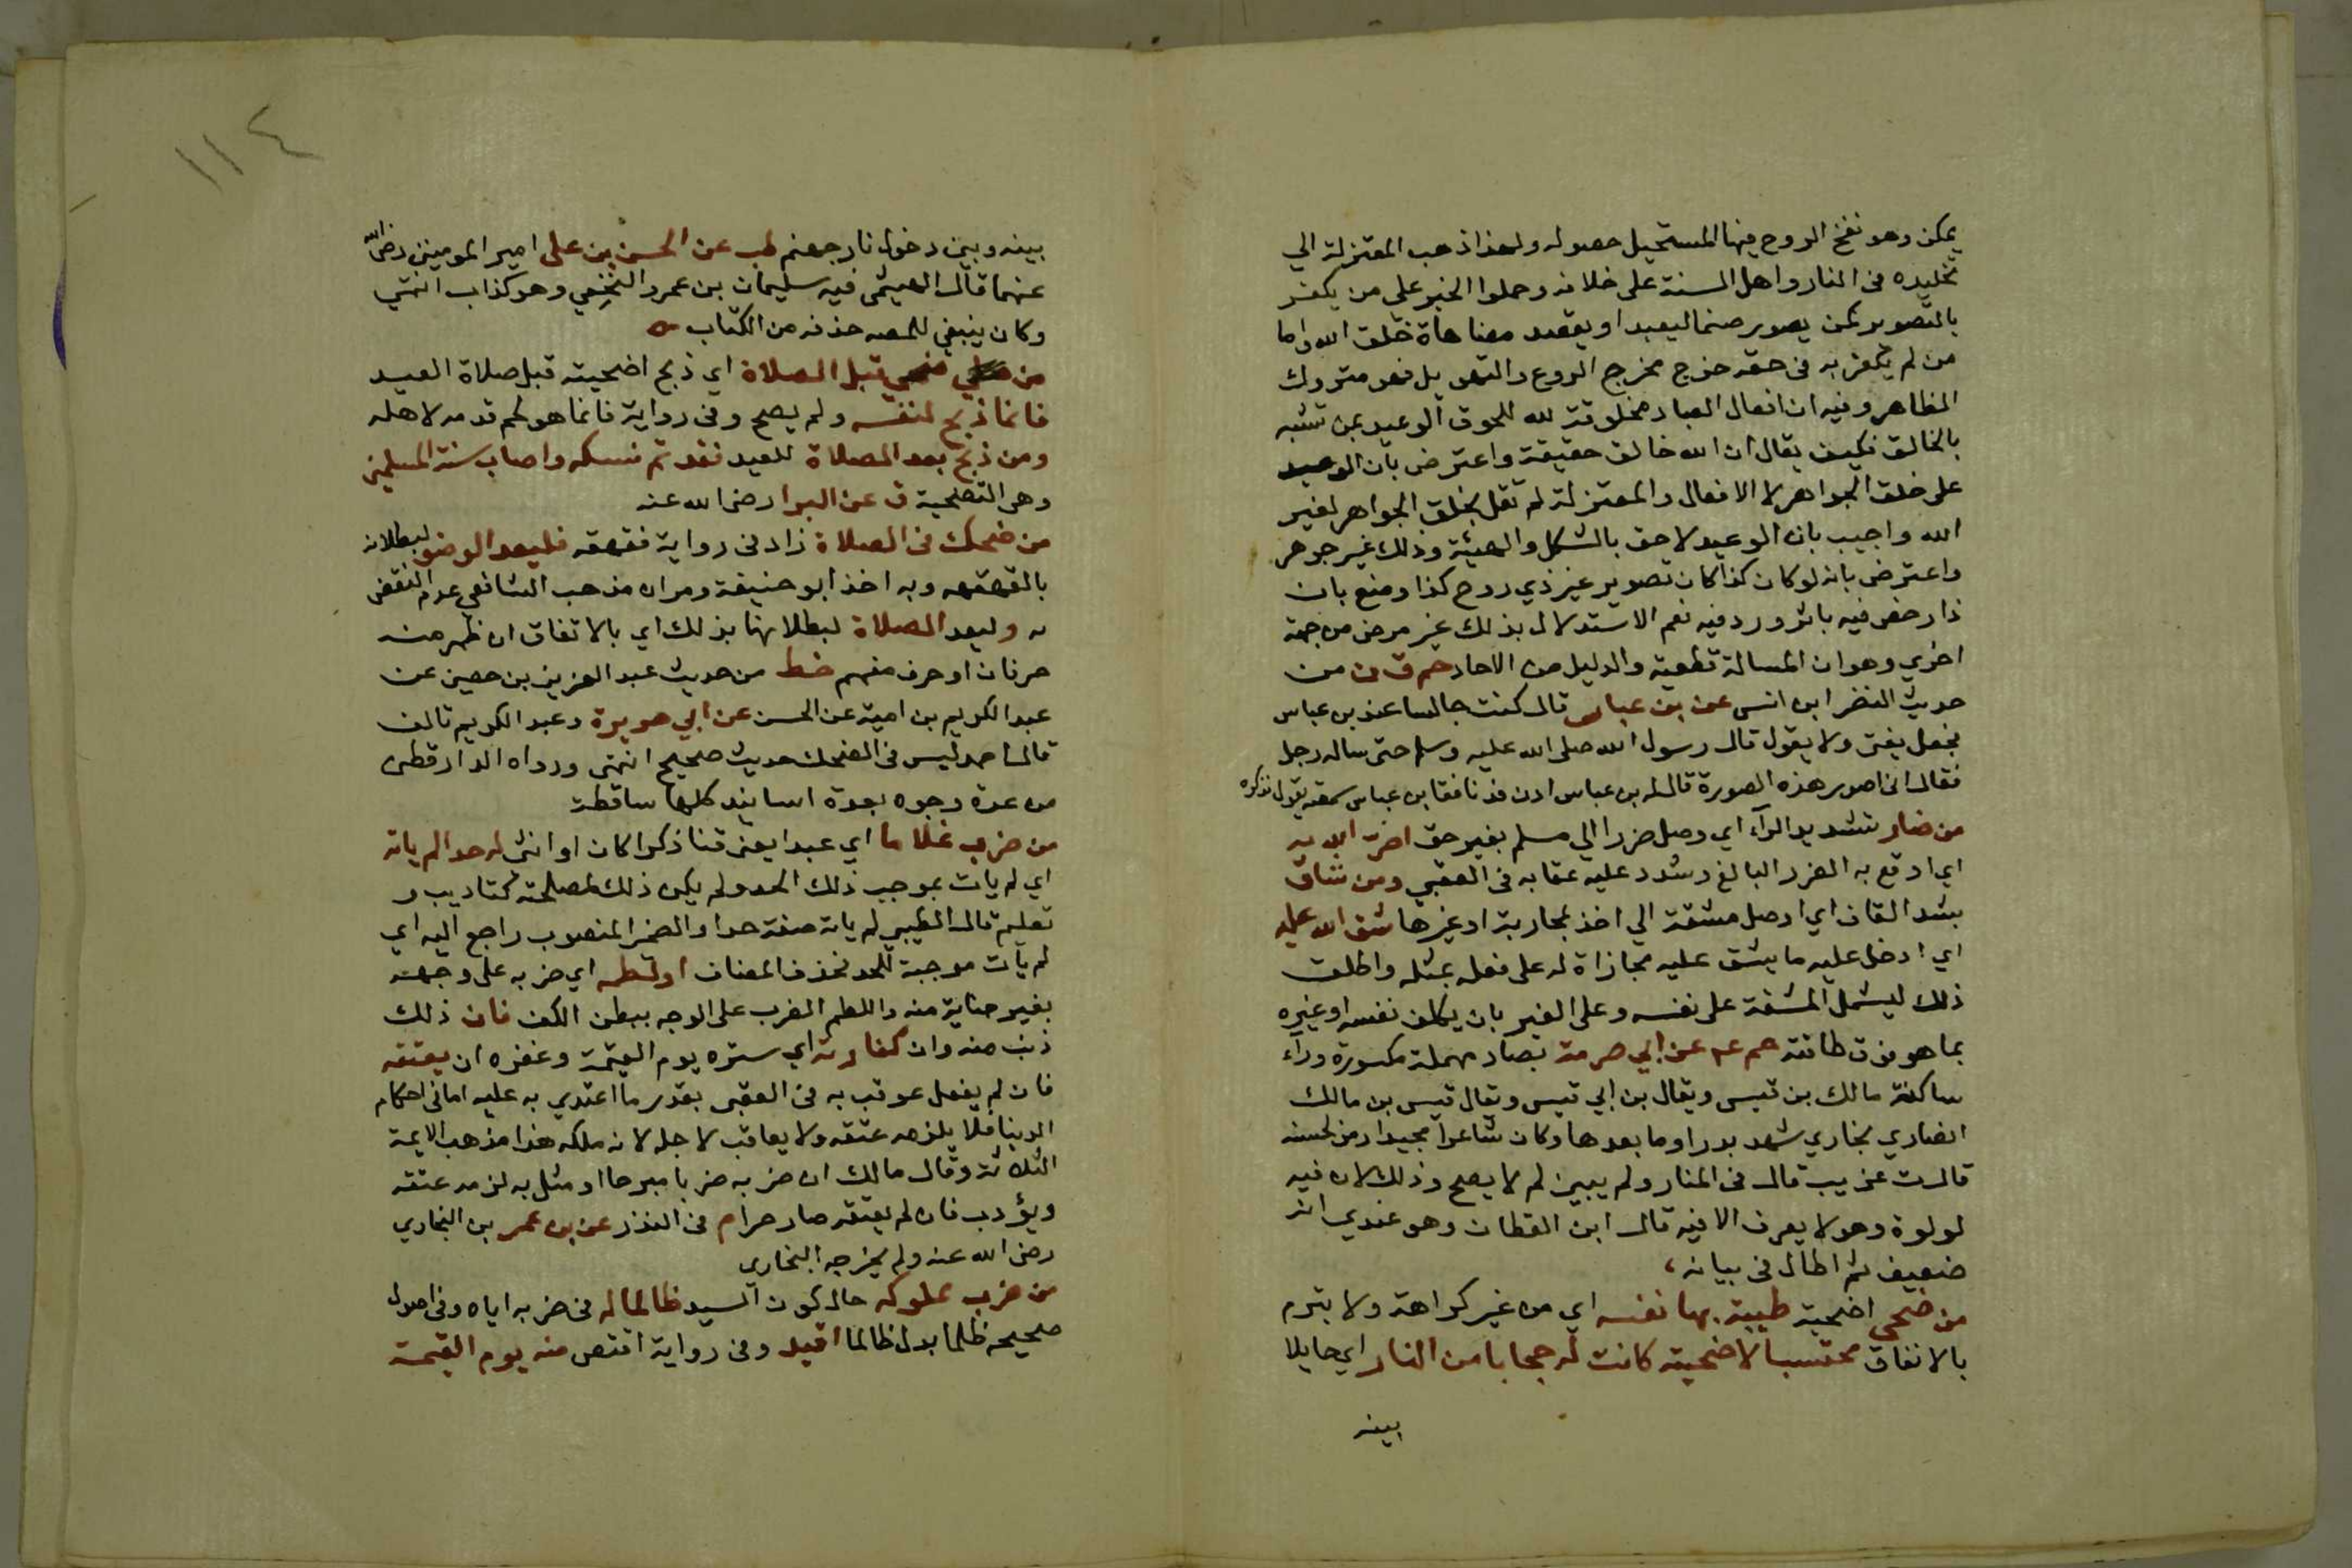 يمكن وهو نفخ الروح فيها المستحيل حصوله ولهذا ذهب المعتزلة الي
تخليده فى النار واهل السنة على خلافه وحملوا الخبر على من يكفر
بالتصوير كمن يصور صنما ليعبد او يقصد مضاهاة خلق الله واما
من لم يكفر به فى حقه خرج مخرج الروع والتهويل فهو متروك
الظاهر وفيه ان افعال العباد مخلوقة لله للحوق الوعيد بمن تشبه
بالخالق فكيف يقال ان الله خالق حقيقة واعترض بان الوعيد
على خلق الجواهر لا الافعال والمعتزلة لم تقل بخلق الجواهر لغير
الله واجيب بان الوعيد لاحق بالشكل والهيئة وذلك غير جوهر
واعترض بانه لو كان كذا كان تصوير غير ذي روح كذا ومنع بان
ذا رخص فيه باثر ورد فيه نعم الاستدلال بذلك غير مرضى من جهة
اخري وهو ان المسالة قطعية والدليل من الاحاد حم ق ن من
حديث النضر ابن انس عن بن عباس قال كنت جالسا عند بن عباس
فجعل يفتى ولا يقول قال رسول الله صلى الله عليه وسلم حتى ساله رجل
فقال انى اصور هذه الصورة قال له بن عباس ادن فدنا فقال بن عباس سمعته يقول فذكره
من ضار بتشديد الرآء اي وصل ضررا الي مسلم بغير حق اضر الله به
اي اوقع به الضرر البالغ وشدد عليه عقابه فى العقبي ومن شاق
بشد القاف اي اوصل مشقة الي اخذ بمحاربة او غيرها شق الله عليه
اي ادخل عليه ما يشق عليه مجازاة له على فعله بمثله واطلق
ذلك ليشمل المشقة على نفسه وعلى الغير بان يكلف نفسه او غيره
بما هو فوق طاقته حم عه عن ابي صرمة بصاد مهملة مكسورة ورآء
ساكنة مالك بن قيس ويقال بن ابي قيس ويقال قيس بن مالك
انصاري نجاري شهد بدرا وما بعدها وكان شاعرا مجيدا رمز لحسنه
قال ت غريب قال فى المنار ولم يبين لم لا يصح وذلك لان فيه
لولوة وهو لا يعرف الا فيه قال ابن القطان وهو عندي انه
ضعيف ثم اطال فى بيانه
من ضحي اضحية طيبة بها نفسه اي من غير كراهة ولا بتبرم
بالانفاق محتسبا لاضحيته كانت له حجابا من النار اي حايلا
بينه
١١٤
بينه وبين دخول نار جهنم طب عن الحسن بن على امير المومنين رضى الله
عنهما قال الهيثمى فيه سليمان بن عمرو النخعي وهو كذاب انتهي
وكان ينبغي للمصه حذفه من الكتاب
من ضحي قبل الصلاة اي ذبح اضحيته قبل صلاة العيد
فانما ذبح لنفسه ولم يصح وفى رواية فانما هو لحم قدمه لاهله
ومن ذبح بعد الصلاة للعيد فقد تم نسكه واصاب سنة المسلمين
وهى التضحية ق عن البرا رضى الله عنه
من ضحك فى الصلاة زاد فى رواية فقهقه فليعد الوضو لبطلانه
بالقهقهه وبه اخذ ابو حنيفة ومر ان مذهب الشافعي عدم النقض
به وليعد الصلاة لبطلانها بذلك اي بالاتفاق ان ظهر منه
حرفان او حرف مفهم خط من حديث عبد العزيز بن حصين عن
عبد الكريم بن امية عن الحسن عن ابي هريرة وعبد الكريم تالف
قال احمد ليس فى الضحك حديث صحيح انتهى ورواه الدارقطنى
من عدة وجوه بعدة اسانيد كلها ساقطة
من ضرب غلاما اي عبدا يعنى قنا ذكرا كان او انثى له حدا لم ياته
اي لم يات بموجب ذلك الحد ولم يكن ذلك لمصلحة كتاديب و
تعليم قال الطيبي لم ياته صفة حدا والضمير المنصوب راجع اليه اي
لم يات موجبة للحد فحذف المضاف او لطمه اي ضربه على وجهه
بغير جناية منه واللطم الضرب على الوجه ببطن الكف فان ذلك
ذنب منه وان كفارته اي ستره يوم القيمة وغفره ان يعتقه
فان لم يفعل عوقب به فى العقبى بقدر ما اعتدي به عليه اما فى احكام
الدينا فلا يلزمه عتقه ولا يعاقب لاجله لانه ملكه هذا مذهب الايمة
الثلاثة وقال مالك ان ضربه ضربا مبرحا او مثل به لزمه عتقه
ويؤدب فان لم يعتقه صار حرا م فى النذر عن بن عمر بن النجاري
رضى الله عنه ولم يخرجه البخاري
من ضرب مملوكه حال كون السيد ظالما له فى ضربه اياه وفى اصول
صحيحه ظلما بدل ظالما اقيد وفى رواية اقتص منه يوم القيمة